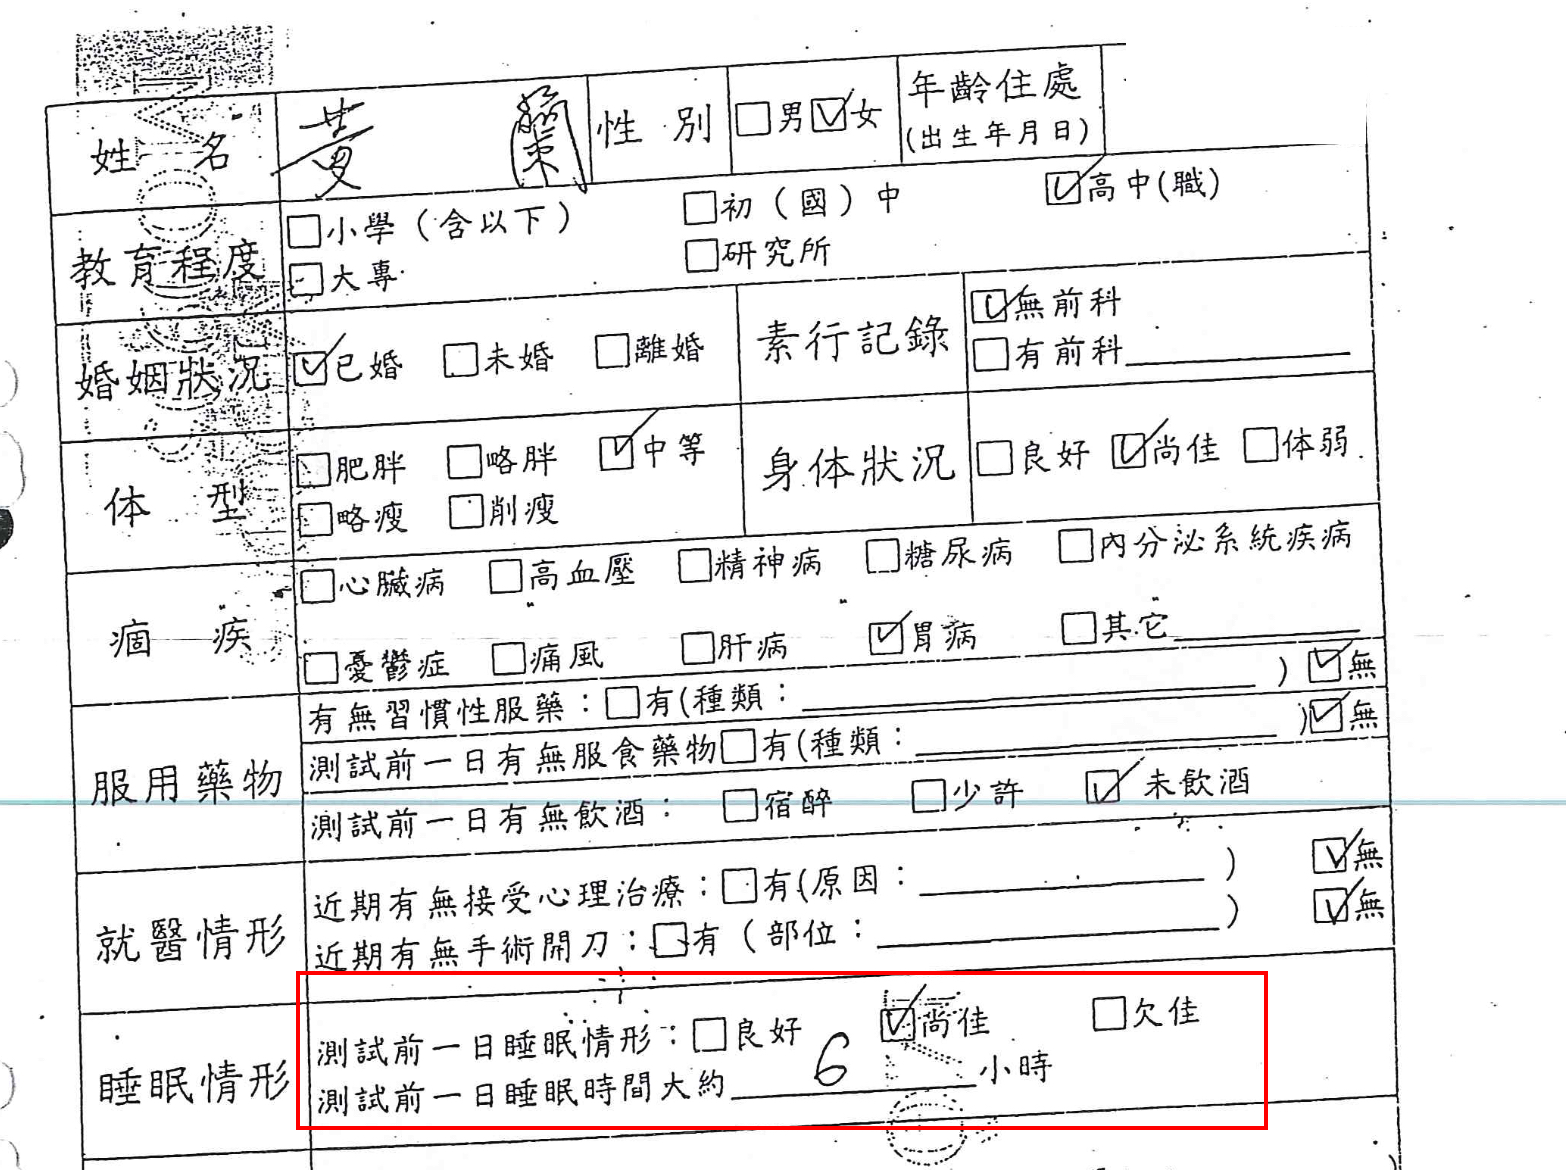 姓 名 黃 蘭 性別 □男 ☑女 年齡住處
(出生年月日)
教育程度 □小學（含以下） □初（國）中 ☑高中(職)
□大專 □研究所
婚姻狀況 ☑已婚 □未婚 □離婚 素行記錄 ☑無前科
□有前科
体 型 □肥胖 □略胖 ☑中等 身体狀況 □良好 ☑尚佳 □体弱
□略瘦 □削瘦
痼 疾 □心臟病 □高血壓 □精神病 □糖尿病 □內分泌系統疾病
□憂鬱症 □痛風 □肝病 ☑胃病 □其它
服用藥物 有無習慣性服藥：□有(種類： ) ☑無
測試前一日有無服食藥物□有(種類： ) ☑無
測試前一日有無飲酒： □宿醉 □少許 ☑未飲酒
就醫情形 近期有無接受心理治療：□有(原因： ) ☑無
近期有無手術開刀：□有（部位： ) ☑無
睡眠情形 測試前一日睡眠情形：□良好 ☑尚佳 □欠佳
測試前一日睡眠時間大約 6 小時